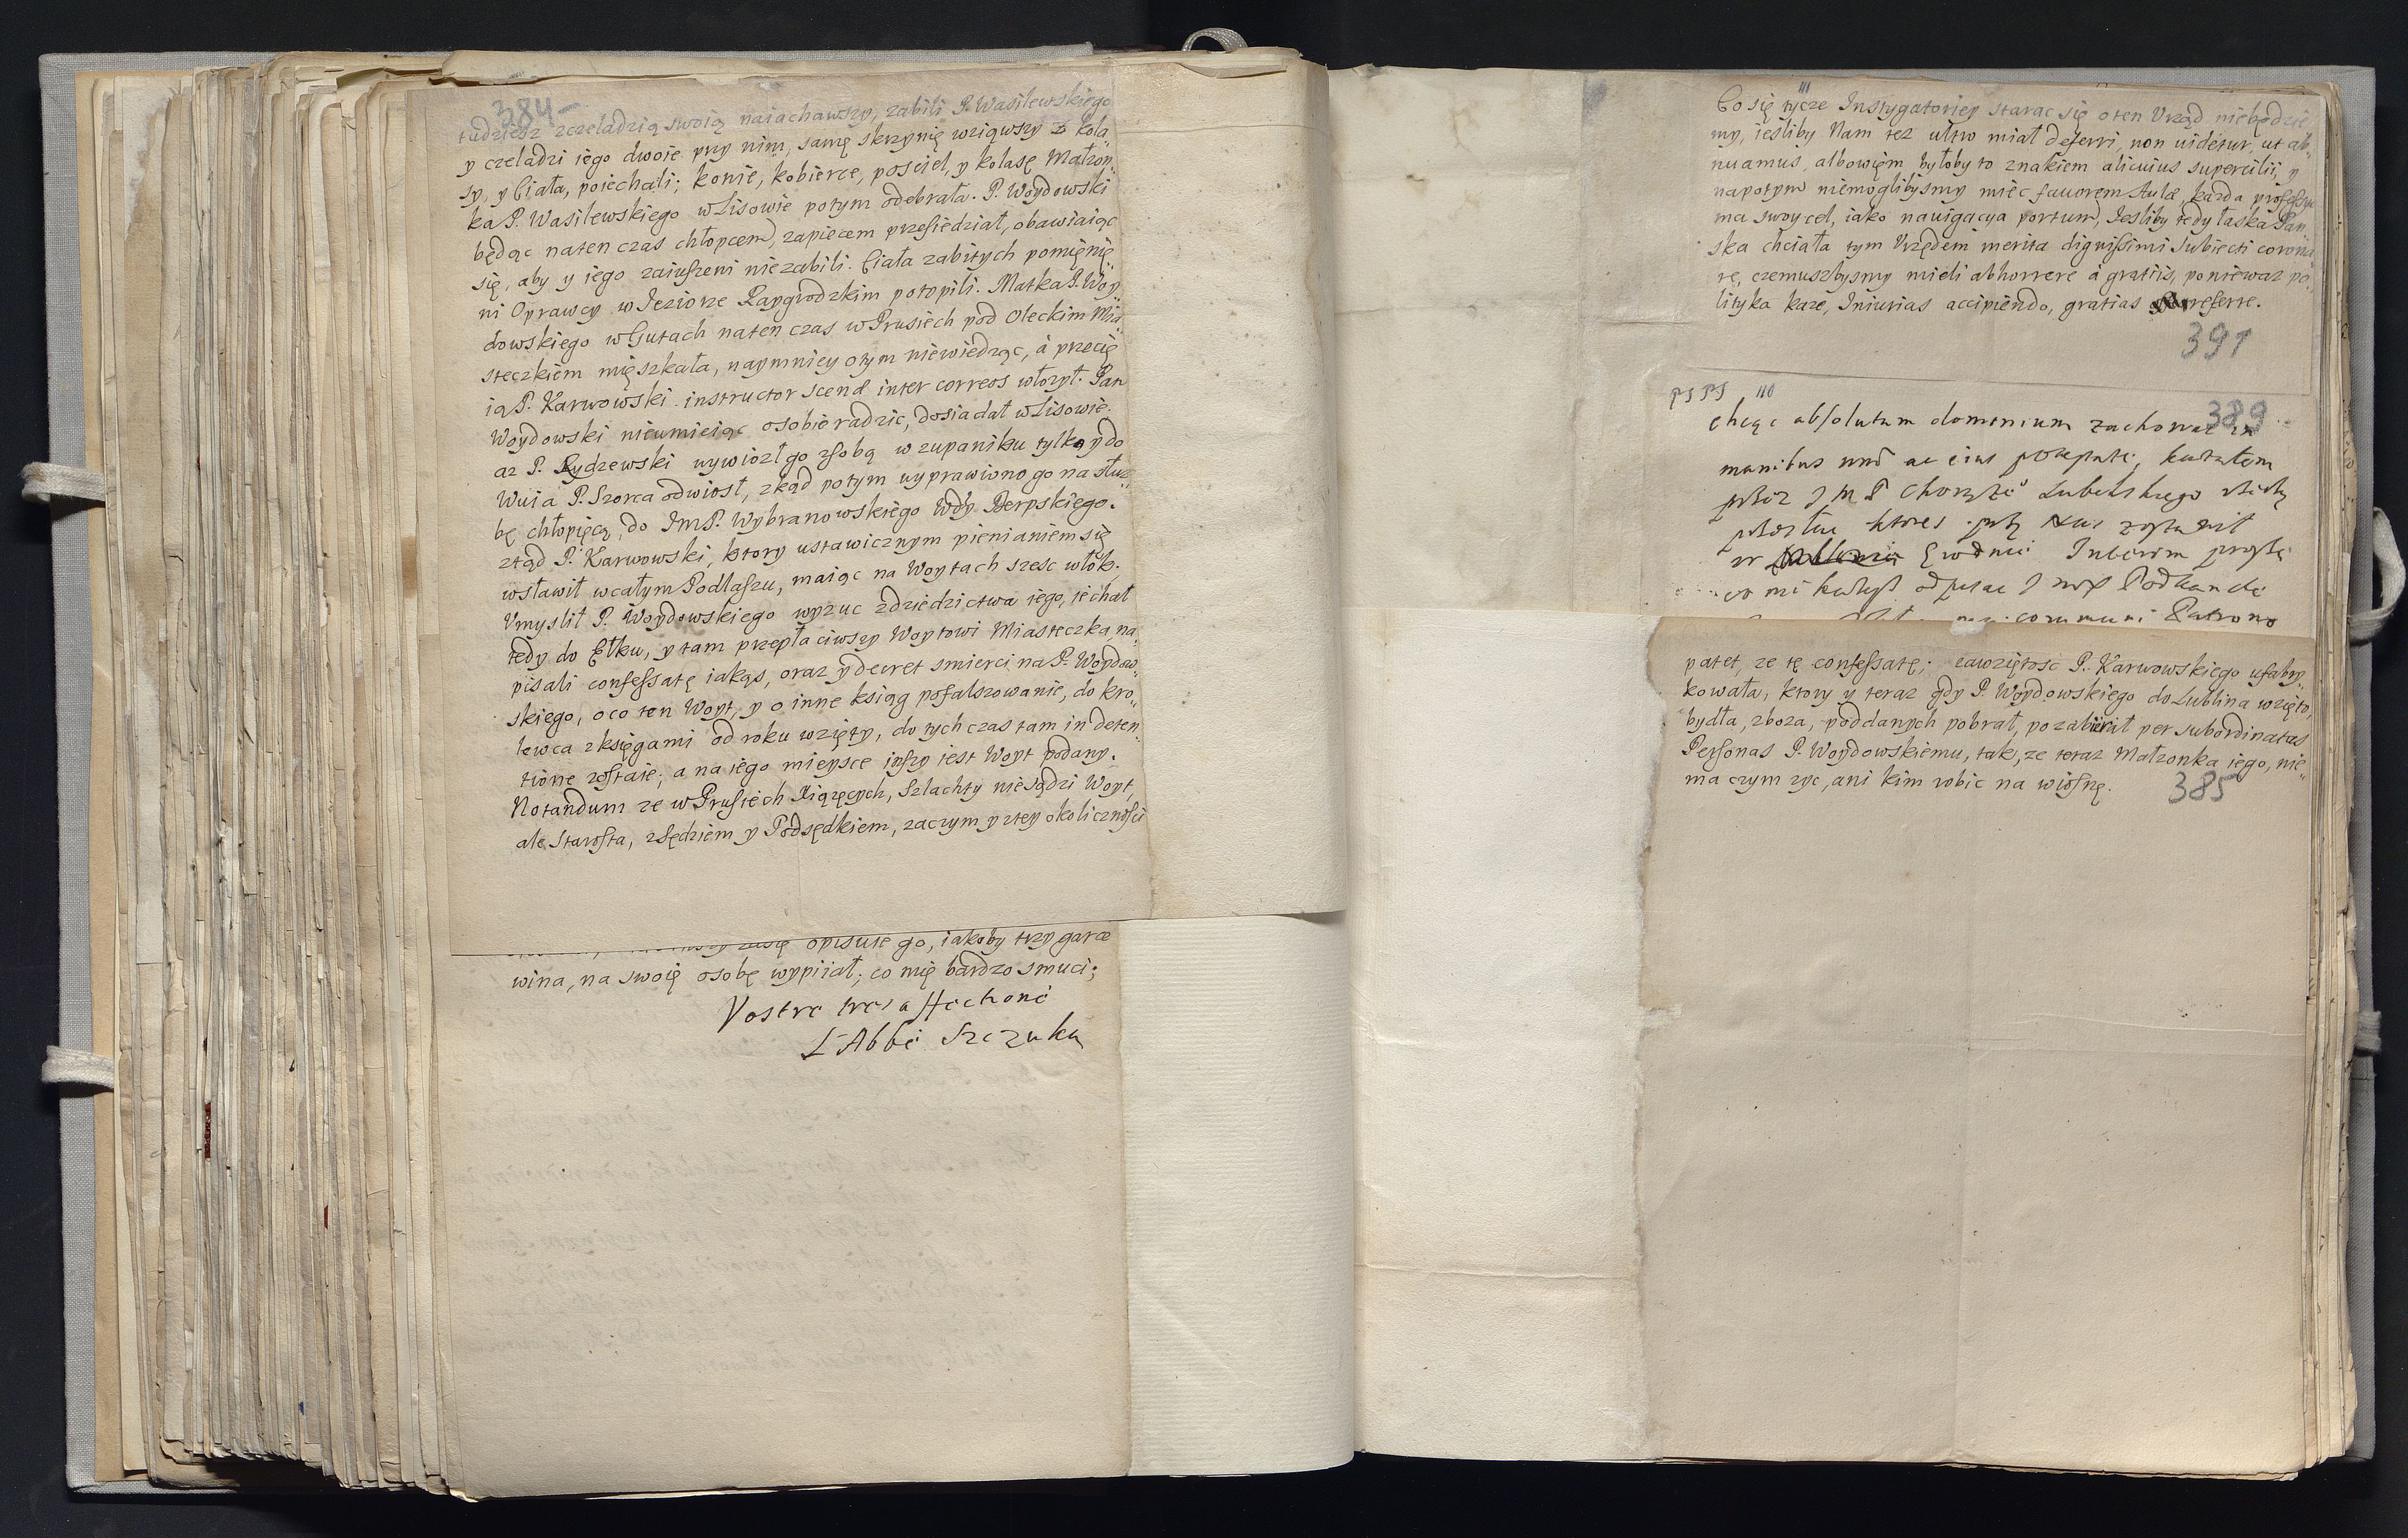 384
tudziesz zczeladzią swoią naiachawszy, zabili P. Wasilewskiego
y czeladzi iego dwoie przy nim, samę skrzynię wziąwszy z kola„
sy, y Ciała, poiechali; konie, kobierce, posciel, y kolasę Małzon„
ka P. Wasilewskiego w Lisowie potym odebrała. P. Woydowski
będąc naten czas chłopcem, zapiecem przesiedział, obawiaiąc
się, aby y iego zaiuszeni niezabili. Ciała zabitych pomięnię„
ni Oprawcy w Jeziorze Raygrodzkim potopili. Matka P. Woy„
dowskiego w Gutach naten czas w Prusiech pod Oleckim Mia„
steczkiem mięszkała, naymniey otym niewiedząc, á przecię
ią P. Karwowski instructor scenæ inter correos włozył. Pan
Woydowski nieumieiąc osobie radzic, dosiadał w Lisowie.
az P. Rydzewski wywiozł go zsobą w zupaniku tylko y do
Wuia P. Szorca odwiosł, zkąd potym wyprawiono go na słuz„
bę chłopięcą, do JmP. Wybranowskiego Wdy Berpskiego.
ztąd P. Karwowski, ktory ustawicznym pienianiem się
wsławił wcałym Podlaszu, maiąc na Woytach szesc włok.
Vmyslił P. Woydowskiego wyzuc zdziedzictwa iego, iechał
tedy do Ełku, y tam przepłaciwszy Woytowi Miasteczka, na„
pisali confessatę iakąs, oraz y decret smierci na P. Woydow„
skiego, oco ten Woyt, y o inne ksiąg pofałszowanie, do Kro„
lewca zksięgami od roku wzięty, do tych czas tam in deten„
tione zostaie; a na iego mieysce inszy iest Woyt podany.
Notandum ze w Prusiech Xiązęcych, Szlachty niesądzi Woyt,
ale Starosta, zSędziem y Podsędkiem, zaczym y ztey okolicznosci
opisuie go, iakoby trzy garce
wina, na swoię osobę wypiiał; co mię bardzo smuci;
Vostre tres affectioné
L'Abbé Szczuka
Co się tycze Instygatoriey starac się oten Vrząd niebędzie
my, iesliby Nam tez ultro miał deferri, non uidetur, ut ab„
nuamus, albowięm byłoby to znakiem alicuius supercilii, y
napotym niemoglibysmy miec fauorem Aulæ, kazda professya
ma swoy cel, iako nauigacya portum, Jesliby tedy łaska Pan„
ska chciała tym Vrzędem merita dignissimi subiecti corona„
re, czemuszbysmy mieli abhorrere á gratiis, poniewaz po„
lityka kaze, Iniurias accipiendo, gratias referre.
391
389
chcąc absolutum dominium zachowac in
manibus
JmP Chorąże Lubelskiego
communi Patrono
patet, ze tę confessatę; zawziętosc P. Karwowskiego ufabry„
kowała, ktory y teraz gdy P. Woydowskiego do Lublina wzięto,
bydła, zboza, poddanych pobrał, pozabierał per subordinatas
Personas P. Woydowskiemu, tak, ze teraz Małzonka iego, nie„
ma czym zyc, ani kim robic na wiosnę.
385